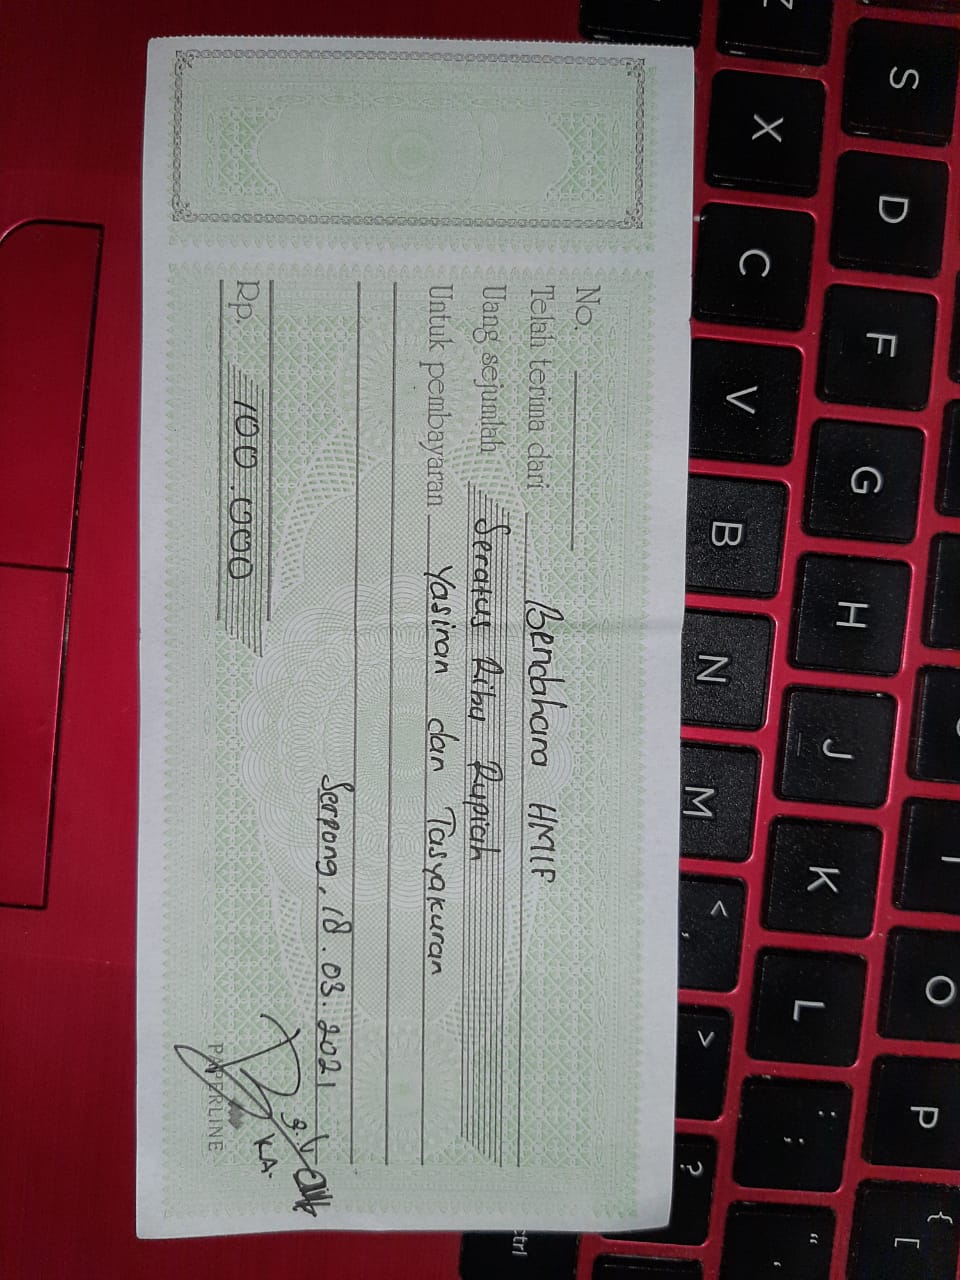 No.
Telah terima dari Bendahara HMIF
Uang sejumlah Seratus Ribu Rupiah
Untuk pembayaran Yasinan dan Tasyakuran
Serpong, 18.03.2021
Rp. 100.000
KA.
PAPERLINE
S D F G H J K L : ;
X C V B N M < , > ?
O P { [
" '